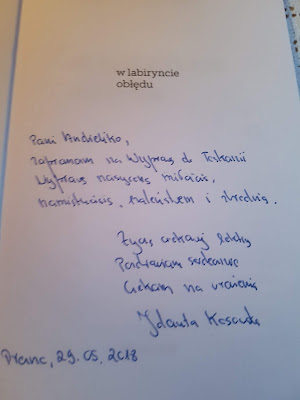 w labiryncie
obłędu
Pani Andżeliko,
zapraszam na wyprawę do Toskanii
Wyprawę nasyconą miłością,
namiętnością, szaleństwem i zbrodnią.
Życzę ciekawej lektury
Pozdrawiam serdecznie
Czekam na wrażenia
Jolanta Kosowska
29.05.2018